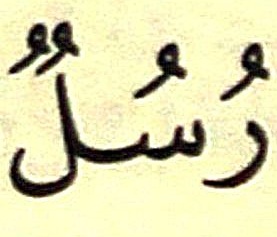 رُسُلٌ